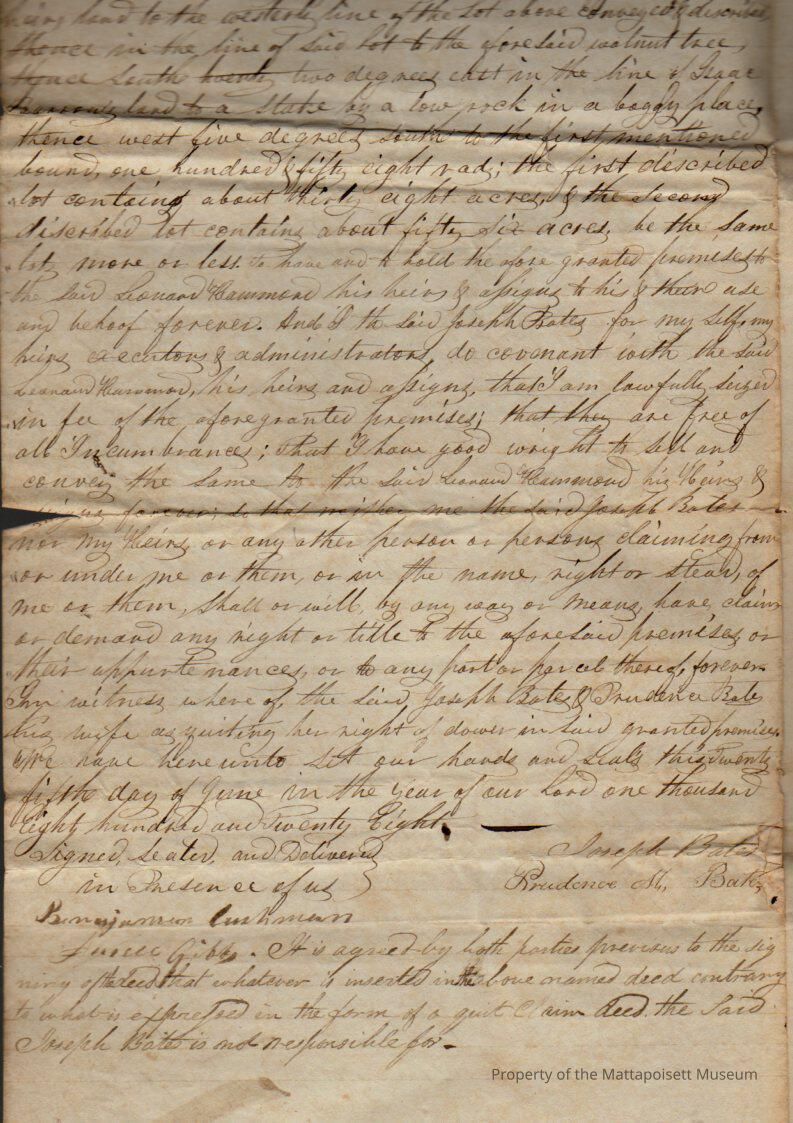 land to the westerly line of the lot above conveyed & described
thence in the line of said lot to the aforesaid walnut tree,
thence South twenty two degrees east in the line of Isaac
land to a stake by a low rock in a boggy place,
thence west five degrees south to the first mentioned
bound, one hundred & fifty eight rad; the first, described
lot containg about thirty eight acres, & the second
discribed lot contains about fifty six acres, be the same
more or less. to have and to hold the afore granted premises to
the said Leonard Hammond his heirs & assigns to his & their use
and behoof forever. And I the said Joseph Bates for my self, my
heirs executors & administrators, do covenant with the said
Leonard Hammond, his heirs and assigns, that I am lawfully seized
in fee of the aforegranted premises; that they are free of
all Incumbrances; that I have good wright to sell and
convey the same to the said Leonard Hammond his Heirs &
forever; so that neither me the said Joseph Bates
nor my Heirs, or any other person or persons claiming from
or under me or them, or in the name, right or stead, of
me or them, shall or will, by any way or means, have, claim
or demand any right or title to the aforesaid premises or
their appurtenances, or to any part or parcel thereof, forever.
In witness where of, the said, Joseph Bates & Prudence Bates
his wife acquiting her right of dower in said granted premises.
We have here unto set our hands and seals this Twenty
fifth day of June in the year of our Lord one thousand
Eight hundred and Twenty Eight.
Signed, Sealed, and Delivered
in Presence of us
Joseph Bates
Prudence M, Bates
Benjamin Cushman
Gibbs. It is agreed by both parties previous to the sig
ning of the deed that whatever is inserted in the above named deed contrary
to what is expressed in the form of a quit Claim deed. the Said
Joseph Bates is not responsible for-
Property of the Mattapoisett Museum